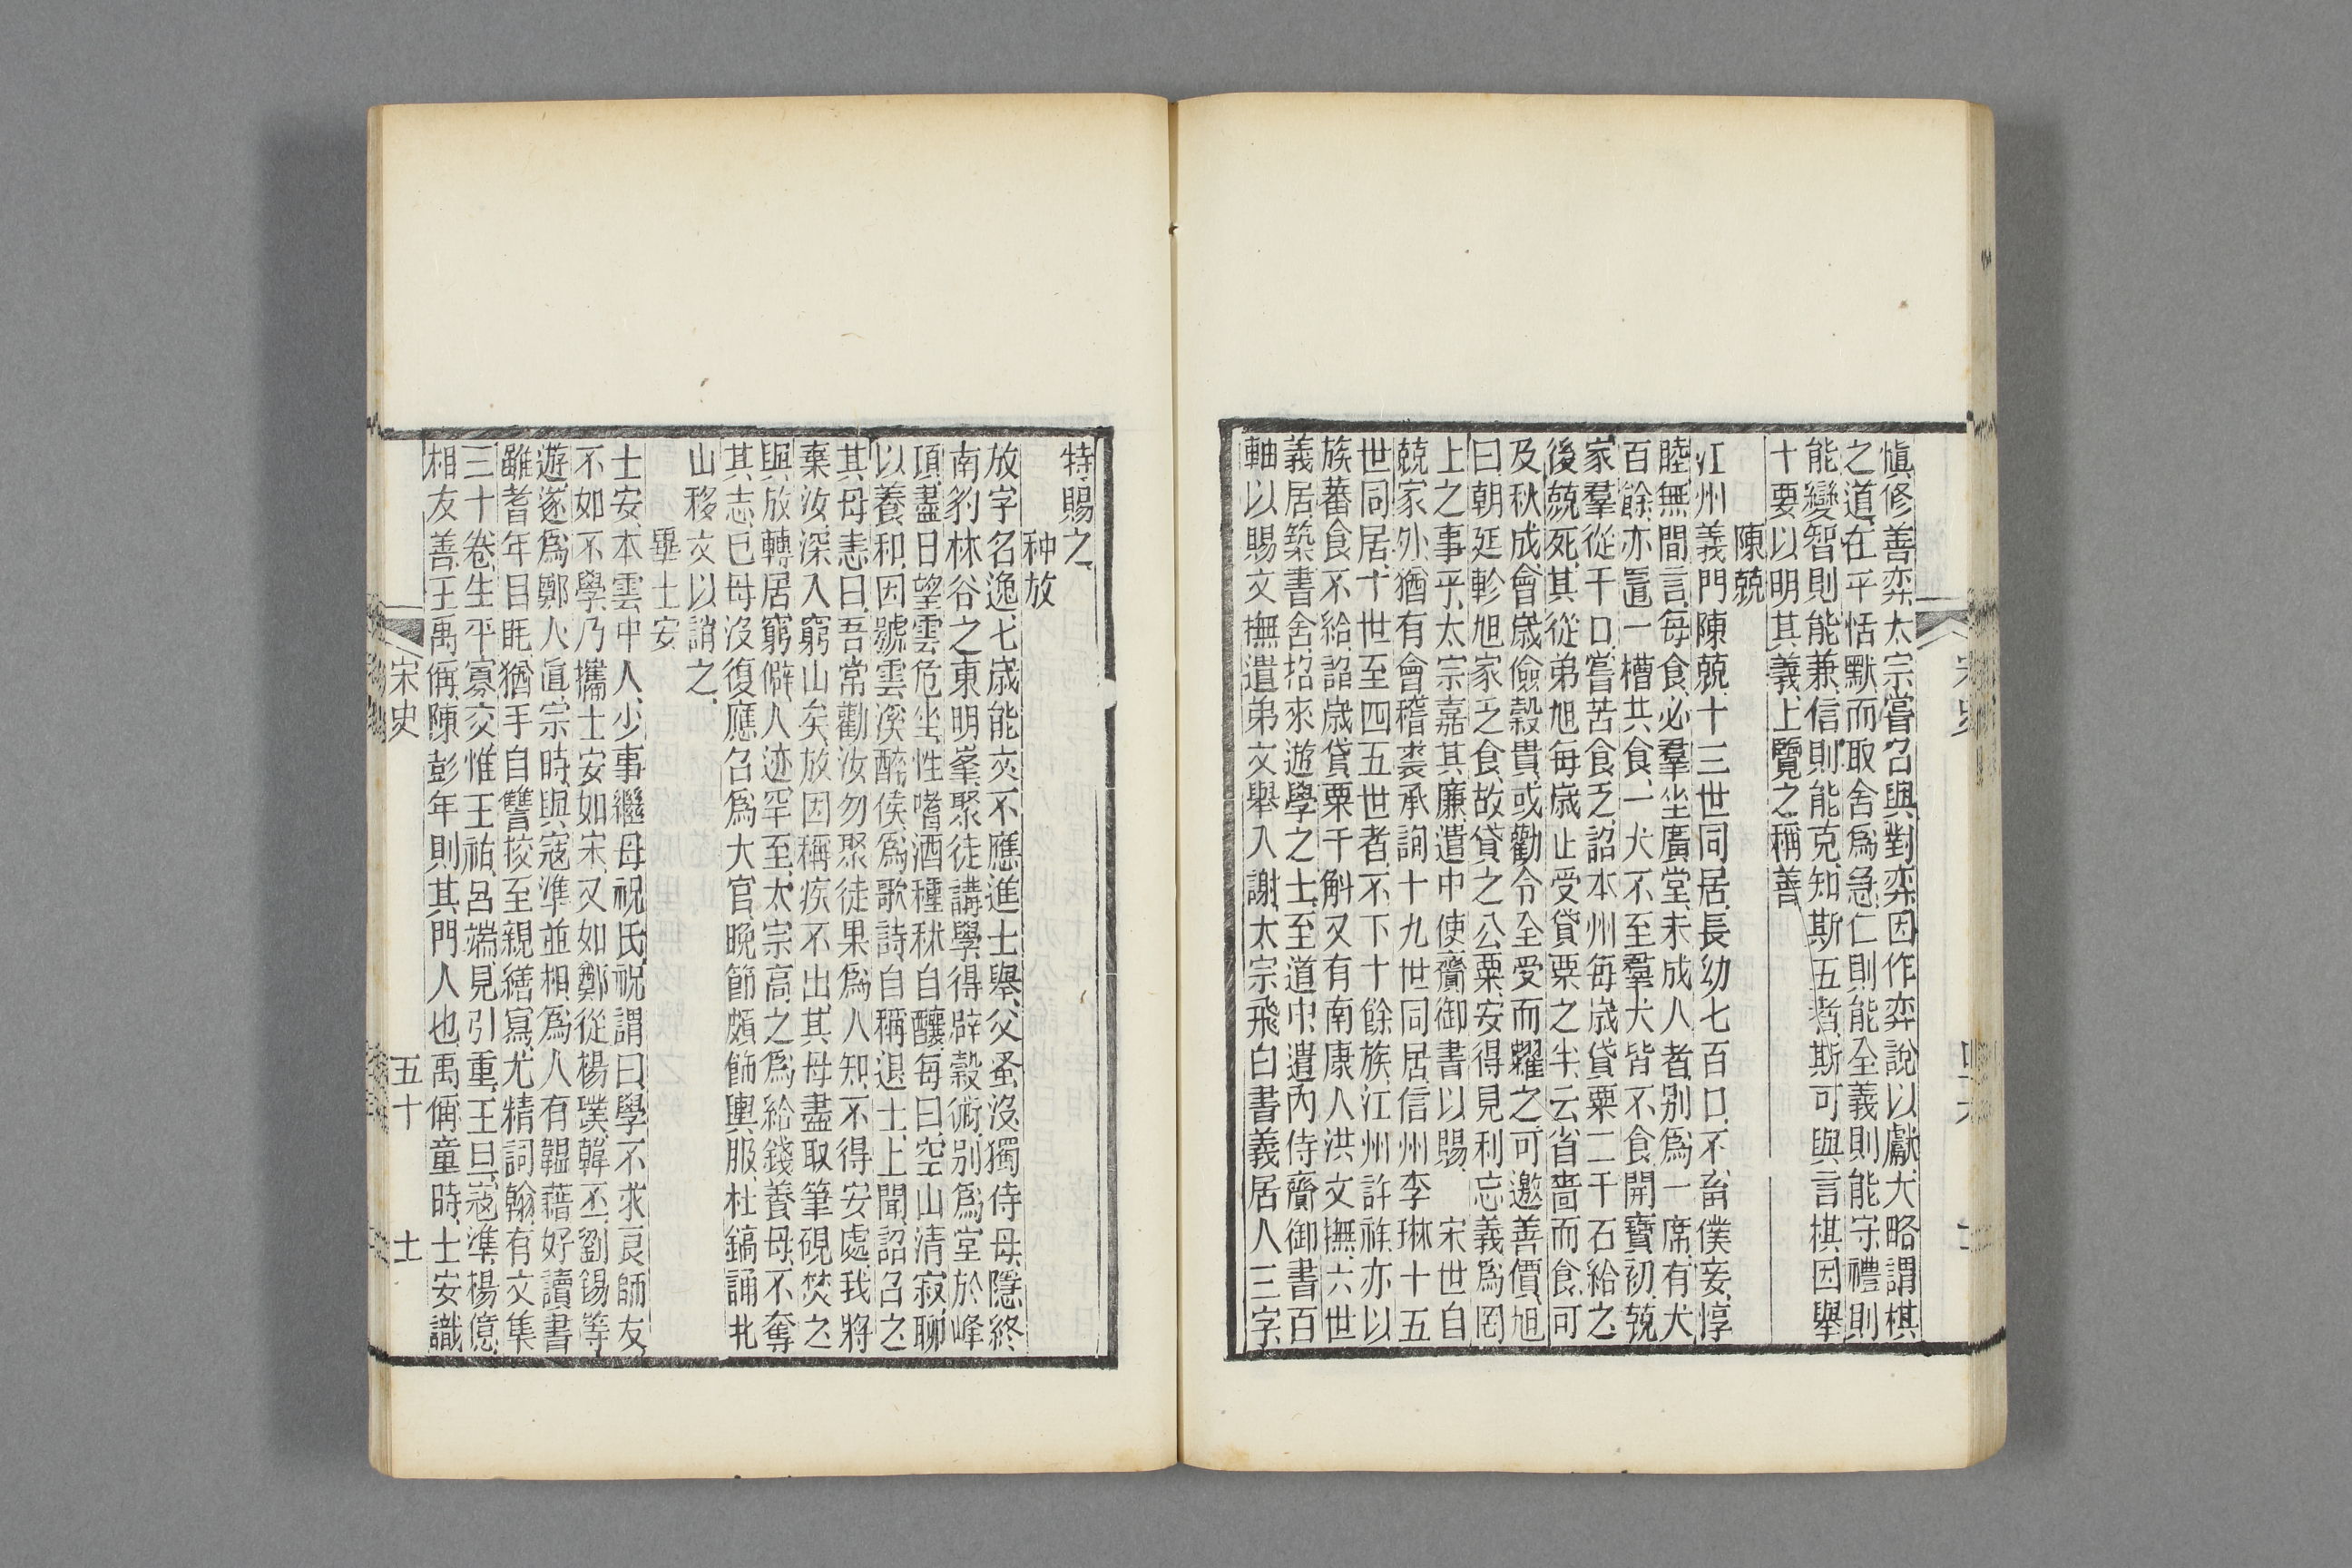 愼修善弈太宗嘗召與對弈因作弈說以獻大略謂棋
之道在乎恬默而取舍爲急仁則能全義則能守禮則
能變智則能兼信則能克知斯五者斯可與言棋因舉
十要以明其義上覽之稱善
陳兢
江州義門陳兢十三世同居長幼七百口不畜僕妾惇
睦無間言每食必羣坐廣堂未成人者別爲一席有犬
百餘亦置一槽共食一犬不至羣犬皆不食開寶初兢
家羣從千口嘗苦食乏詔本州每歲貸粟二千石給之
後兢死其從弟旭每歲止受貸粟之半云省嗇而食可
及秋成會歲儉穀貴或勸令全受而糶之可邀善價旭
曰朝延軫旭家乏食故貸之公粟安得見利忘義爲罔
上之事乎太宗嘉其廉遣中使齎御書以賜 宋世自
兢家外猶有會稽裘承詢十九世同居信州李琳十五
世同居十世至四五世者不下十餘族江州許祚亦以
族蕃食不給詔歲貸粟千斛又有南康人洪文撫六世
義居築書舍招來遊學之士至道中遣內侍齎御書百
軸以賜文撫遣弟文舉入謝太宗飛白書義居人三字
特賜之
种放
放字名逸七歲能文不應進士舉父蚤沒獨侍母隱終
南豹林谷之東明峯聚徒講學得辟穀術別爲堂於峰
頂盡日望雲危坐性嗜酒種秫自釀每曰空山清寂聊
以養和因號雲溪醉侯爲歌詩自稱退士上聞詔召之
其母恚曰吾常勸汝勿聚徒果爲人知不得安處我將
棄汝深入窮山矣放因稱疾不出其母盡取筆硯焚之
與放轉居窮僻人迹罕至太宗高之爲給錢養母不奪
其志已母沒復應召爲大官晚節頗飾輿服杜鎬誦北
山移文以誚之
畢士安
士安本雲中人少事繼母祝氏祝謂曰學不求良師友
不如不學乃攜士安如宋又如鄭從楊璞韓丕劉錫等
遊遂爲鄭人眞宗時與寇準並相爲人有韞藉好讀書
雖耆年目眊猶手自讐挍至親繕寫尤精詞翰有文集
三十卷生平寡交惟王祐呂端見引重王旦寇準楊億
相友善王禹偁陳彭年則其門人也禹偁童時士安識
宋史
五十
十